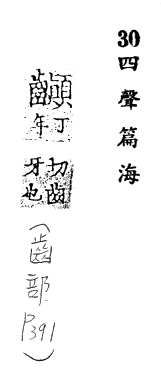 30 四聲篇海
丁年
切齒牙也
(齒部 P391)